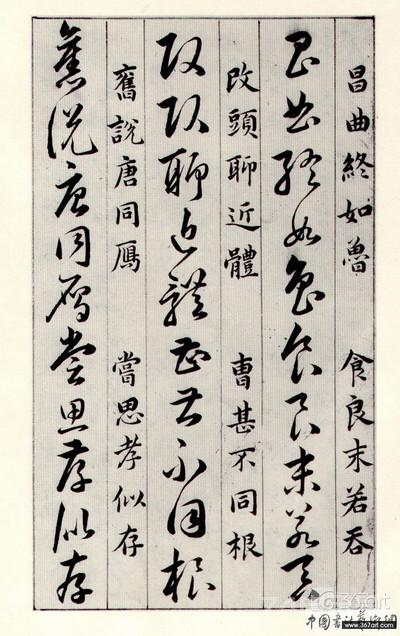 昌曲終如魯 食良末若吞
昌曲終如魯食良末若吞
改頭聊近體 曹甚不同根
改頭聊近體曹甚不同根
舊說唐同鴈 嘗思孝似存
舊說唐同鴈嘗思孝似存
www.367art.com